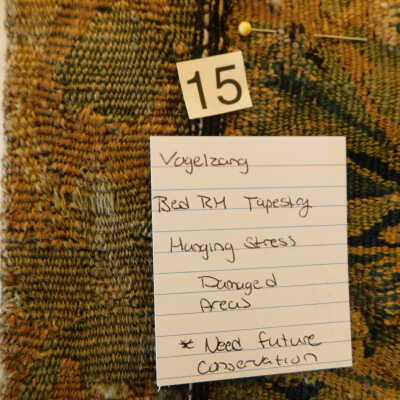 15
Vogelzang
Bed RM Tapestry
Hanging Stress
Damaged
Areas
* Need future
conservation